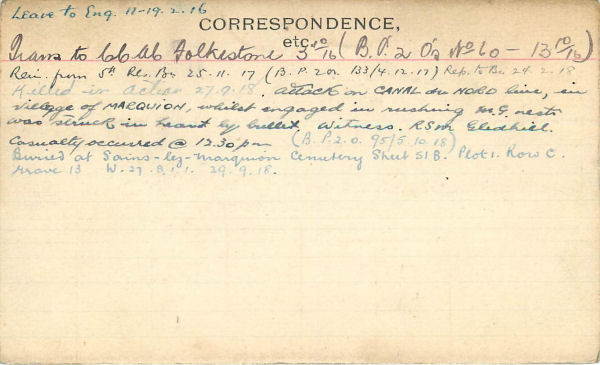 Leave to Eng. 11-19.2.16
CORRESPONDENCE,
etc.
Trans to CCAC Folkestone 3 10/16 (B.P.2 O's No 60 - 13 10/16)
Rein. from 5th Res. Bn 25.11.17 (B.P.2 on 133/4.12.17) Rep. to Bn. 24.2.18
Killed in Action 27.9.18. attack on CANAL du NORD line, in
village of MARQUION, whilst engaged in rushing M.G. nests
was struck in heart by bullet. Witness. RSM
Casualty occurred @ 12.30 pm (B.P.2.O. 95/5.10.18)
Buried at Sains-lez-Marquion Cemetery Sheet 51B. Plot 1. Row C.
Grave 13 W.27.B.1.1. 29.9.18.